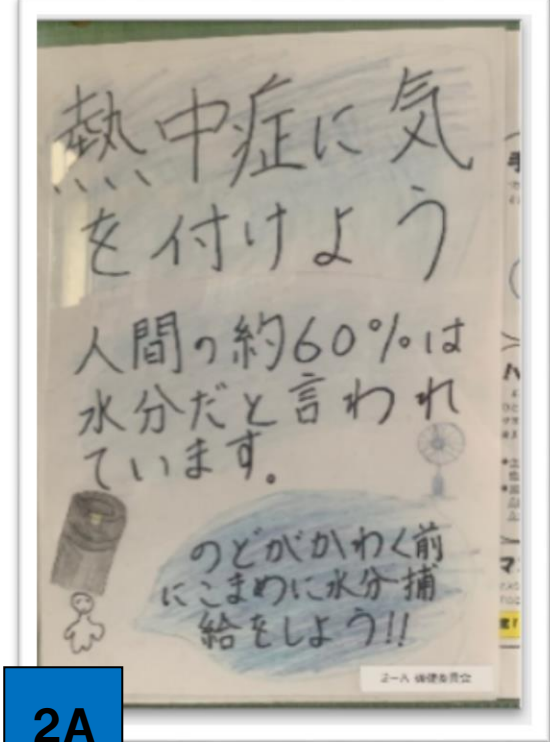 熱中症に気
を付けよう
人間の約60%は
水分だと言われ
ています。
のどがかわく前
にこまめに水分捕
給をしよう!!
2-A 保健委員会
2A